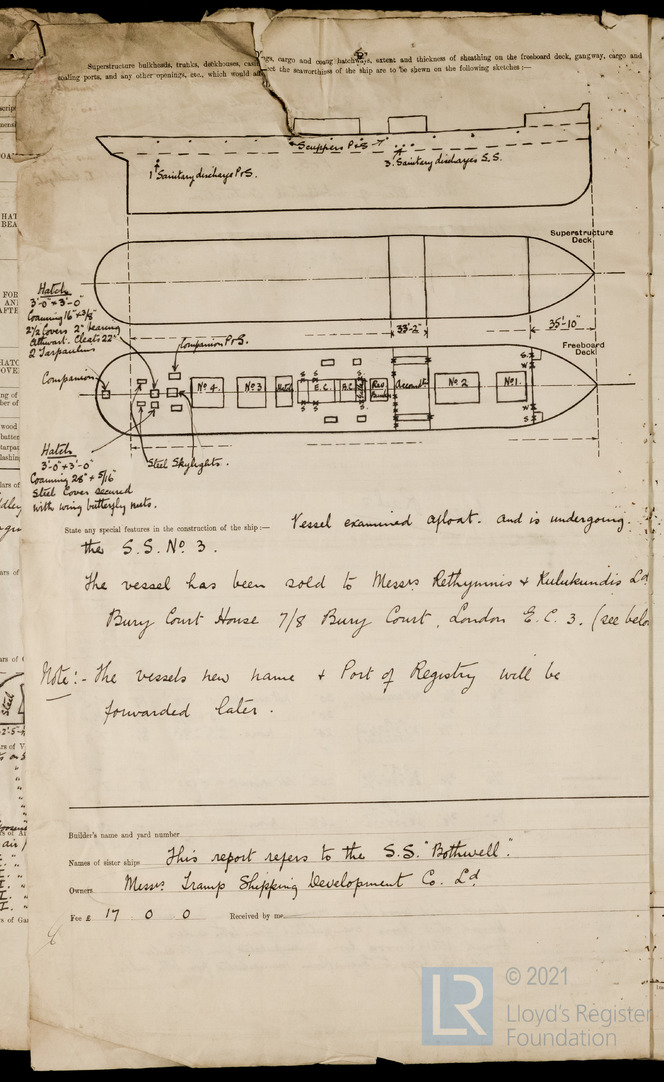 Superstructure bulkheads, trunks, deckhouses, casings, cargo and coaling hatchways, extent and thickness of sheathing on the freeboard deck, gangway, cargo and
coaling ports, and any other openings, etc., which would affect the seaworthiness of the ship are to be shewn on the following sketches:—
Scuppers P+S
1 Sanitary discharge P+S.
3. Sanitary discharges S.S.
Superstructure
Deck
33'-2"
35'-10"
Freeboard
Deck
Hatch
3'-0" + 3'-0"
Coaming 16" + 3/8"
2 1/2 Covers 2" bearing
Athwart. Cleats 22"
2 Tarpaulins
Companion P+S.
Companion
No 4.
No 3
Hatch
E.C.
A.C.
Res
Bunker
Accomtn
No 2
No 1.
Hatch
3'-0" + 3'-0"
Coaming 28" + 5/16"
Steel Cover secured
with wing butterfly nuts.
Steel Skylights.
State any special features in the construction of the ship:— Vessel examined afloat. and is undergoing
the S.S. No 3.
The vessel has been sold to Messrs Rethymnis & Kulukundis Ld
Bury Court House 7/8 Bury Court, London E.C. 3. (see belo
Note:- The vessels new name & Port of Registry will be
forwarded later.
Builder's name and yard number
Names of sister ships This report refers to the S.S. "Bothwell".
Owners Messrs. Tramp Shipping Development Co. Ld
Fee £ 17 0 0 Received by me
LR
© 2021
Lloyd's Register
Foundation